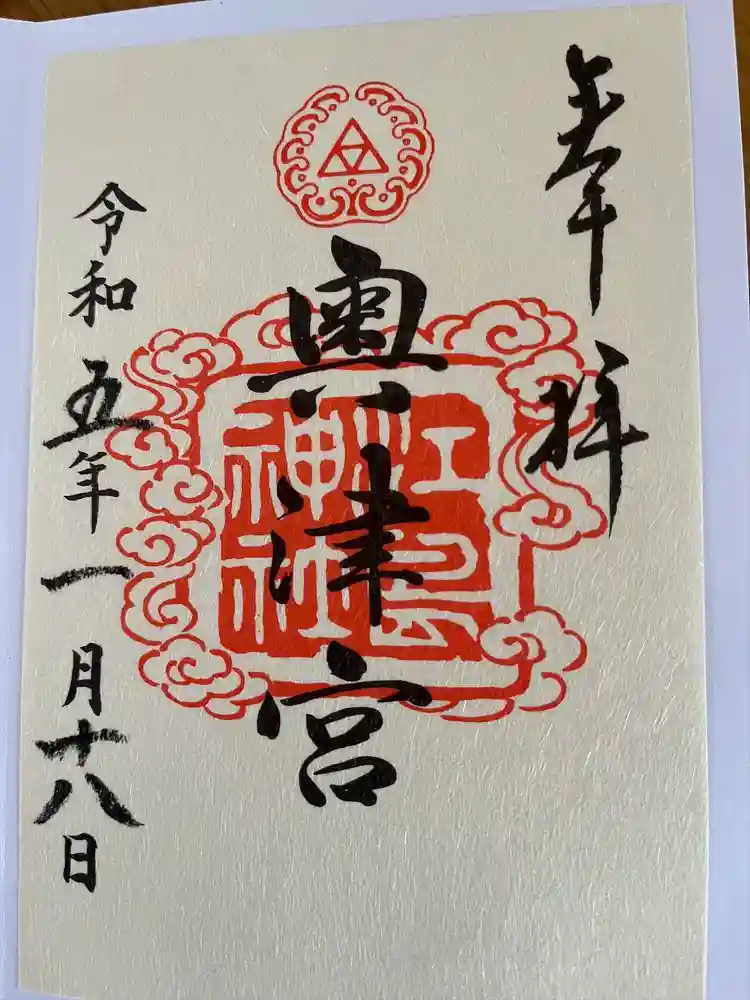 奉拝
奥津宮
江島
神社
令和五年一月十八日